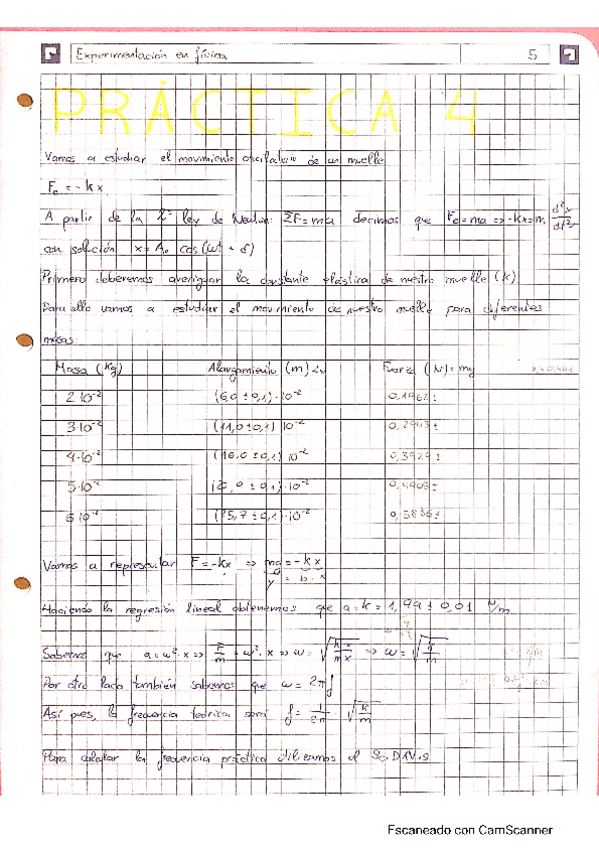 Experimentación en física
5
PRÁCTICA 4
Vamos a estudiar el movimiento oscilatorio de un muelle
Fe = -kx
A partir de la 2ª ley de Newton: ΣF=ma decimos que Fe=ma => -kx=m d²x/dt²
con solución x = A₀ cos(ωt + δ)
Primero deberemos averiguar la constante elástica de nuestro muelle (k)
Para ello vamos a estudiar el movimiento de nuestro muelle para diferentes
masas
Masa (Kg) Alargamiento (m) Fuerza (N)=mg
2·10⁻² (6,0±0,1)·10⁻² 0,1962±
3·10⁻² (11,0±0,1)·10⁻² 0,2943±
4·10⁻² (16,0±0,1)·10⁻² 0,3924±
5·10⁻² 0,1)·10⁻² 0,4905±
6·10⁻² 0,1)·10⁻² 0,5886±
Vamos a representar F=-kx => mg=-kx
y = b·x
Haciendo la regresión lineal obtenemos que a=k=1,99±0,01 N/m
Sabemos que a=ω²·x => F/m = ω²·x => ω = √(k·x/m·x) => ω = √(k/m)
Por otro lado también sabemos que ω = 2πf
Así pues, la frecuencia teórica será f = 1/2π · √(k/m)
Para calcular la frecuencia práctica utilizamos el
Escaneado con CamScanner